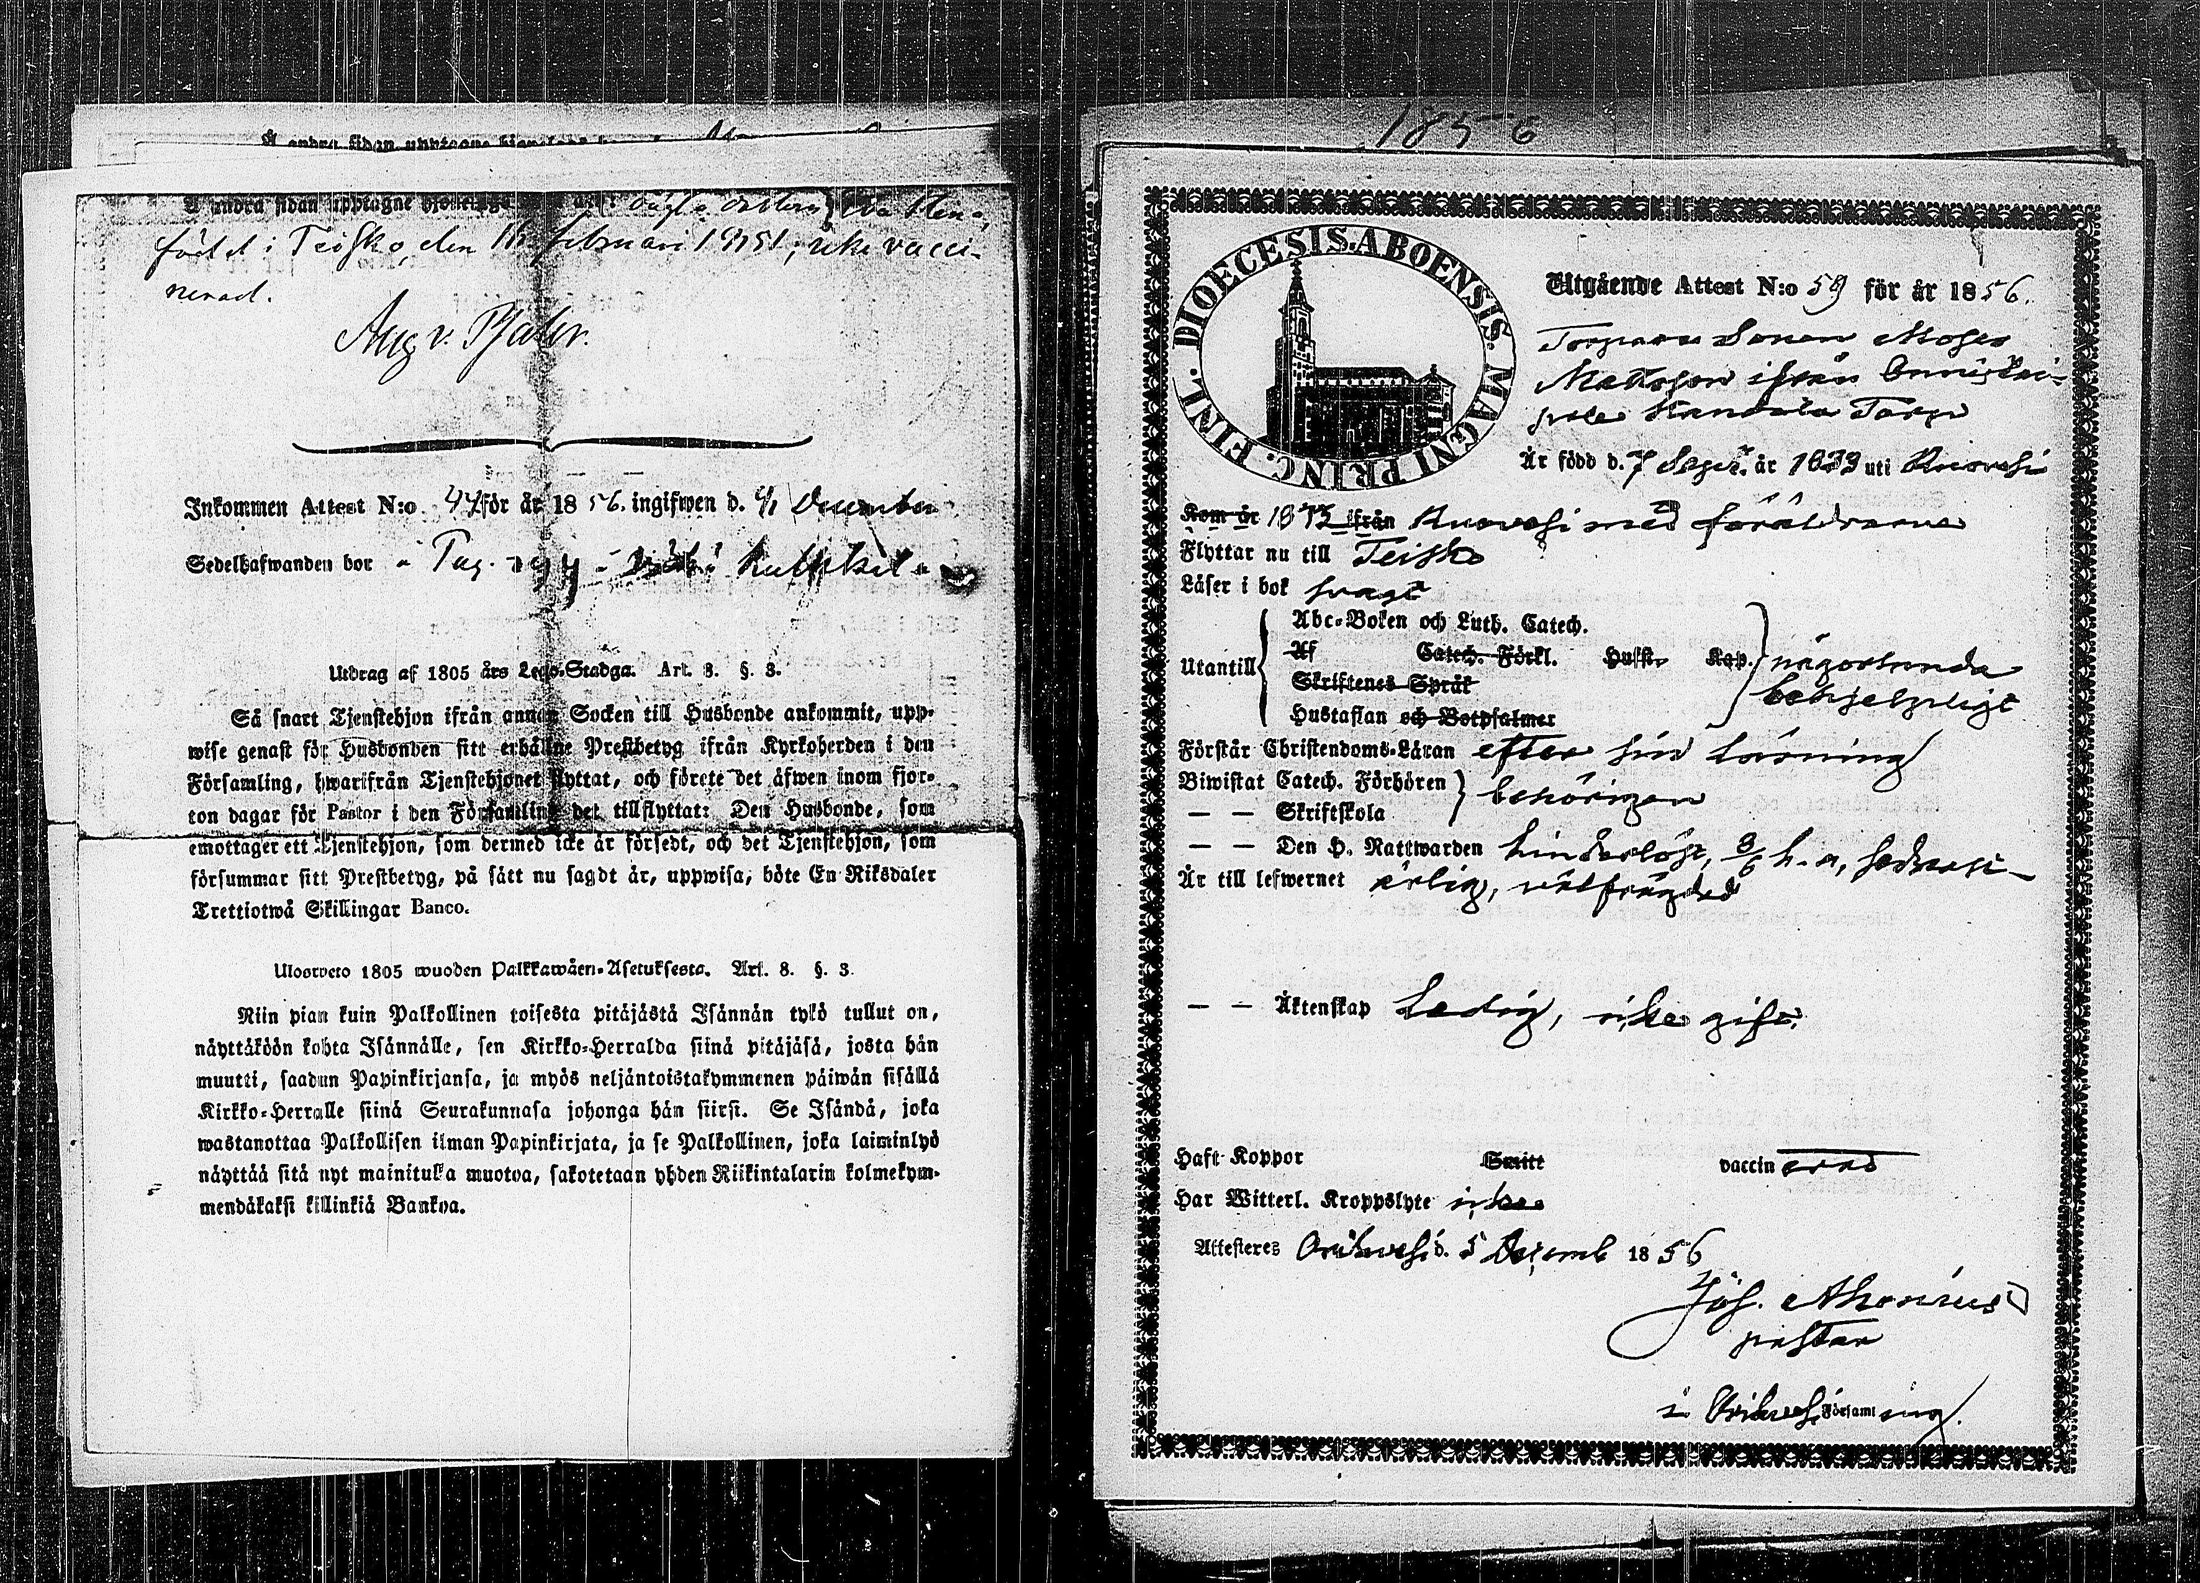 Å andra sidan upptagne
född i Teisko, den februari 1851, icke vacci-
nerad.
Inkommen Attest N:o 44 för år 1856. ingifwen d. December
Sedelhafwanden bor
Utdrag af 1805 års Lego-Stadga. Art. 8. §. 3.
Så snart Tjenstehjon ifrån annan Socken till Husbonde ankommit, upp-
wise genast för Husbonden sitt erhållne Prestbetyg ifrån Kyrkoherden i den
Församling, hwarifrån Tjenstehjonet flyttat, och förete det äfwen inom fjor-
ton dagar för Pastor i den Församling det tillflyttat: Den Husbonde, som
emottager ett Tjenstehjon, som dermed icke är försedt, och det Tjenstehjon, som
försummar sitt Prestbetyg, på sätt nu sagdt är, uppwisa, böte En Riksdaler
Trettiotwå Skillingar Banco.
Ulosweto 1805 wuoden Palkkawäen-Asetuksesta. Art. 8. §. 3.
Niin pian kuin Palkollinen toisesta pitäjästä Isännän tykö tullut on,
näyttäköön kohta Isännälle, sen Kirkko-Herralda siinä pitäjäsä, josta hän
muutti, saadun Papinkirjansa, ja myös neljäntoistakymmenen päiwän sisällä
Kirkko-Herralle siinä Seurakunnasa johonga hän siirsi. Se Isändä, joka
wastanottaa Palkollisen ilman Papinkirjata, ja se Palkollinen, joka laiminlyö
näyttää sitä nyt mainitulla muotoa, sakotetaan yhden Riikintalarin kolmekym-
mendäkaksi killinkiä Bankoa.
1856
DIOECESIS. ABOENSIS. MAGNI PRINC. FINL.
Utgående Attest N:o 59 för år 1856.
Torpare Sonen Moses
Mattsson ifrån
Torp
Är född d. 7 Sept. år 1839 uti Ruovesi
Kom år ifrån Ruovesi med föräldrarne
Flyttar nu till Teisko
Läser i bok svagt
Abc-Boken och Luth. Catech.
Utantill Af Catech. Förkl. Husst. Kap. någorlunda
Skriftenes Språk
Hustaflan och Botpsalmer behjelpligt
Förstår Christendoms-Läran efter sin läsning
Biwistat Catech. Förhören
— — Skriftskola behörigen
— — Den H. Nattwarden hinderlöst, 8/6 h. a,
Är till lefwernet ärlig, välfrägdad
— — Äktenskap Ledig, icke gift.
Haft Koppor Smitt vaccinerad
Har Witterl. Kroppslyte icke
Attesteres Orihvesi d. 5 Decemb 1856
Jos. Ahonius
pastor
i Orihvesi Församling.